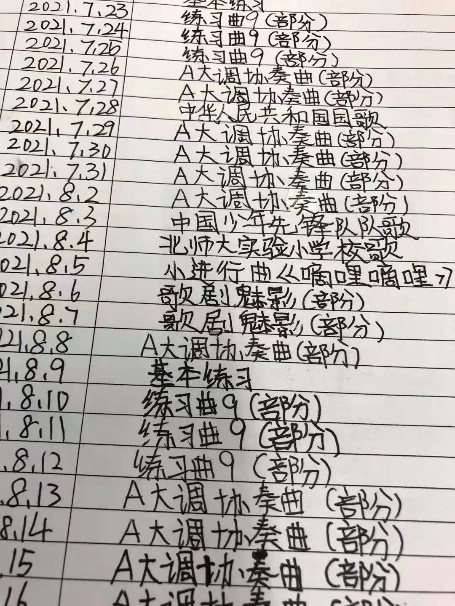 2021.7.23 基本练习
2021.7.24 练习曲9(部分)
2021.7.25 练习曲9(部分)
2021.7.26 练习曲9(部分)
2021.7.27 A大调协奏曲(部分)
2021.7.28 A大调协奏曲(部分)
2021.7.29 中华人民共和国国歌
2021.7.30 A大调协奏曲(部分)
2021.7.31 A大调协奏曲(部分)
2021.8.2 A大调协奏曲(部分)
2021.8.3 A大调协奏曲(部分)
2021.8.4 中国少年先锋队队歌
021.8.5 北师大实验小学校歌
021.8.6 小进行曲《嘀哩嘀哩》
021.8.7 歌剧魅影(部分)
21.8.8 歌剧魅影(部分)
21.8.9 A大调协奏曲(部分)
1.8.10 基本练习
1.8.11 练习曲9(部分)
.8.12 练习曲9(部分)
8.13 练习曲9(部分)
8.14 A大调协奏曲(部分)
15 A大调协奏曲(部分)
16 A大调协奏曲(部分)
A大调协奏曲(部分)